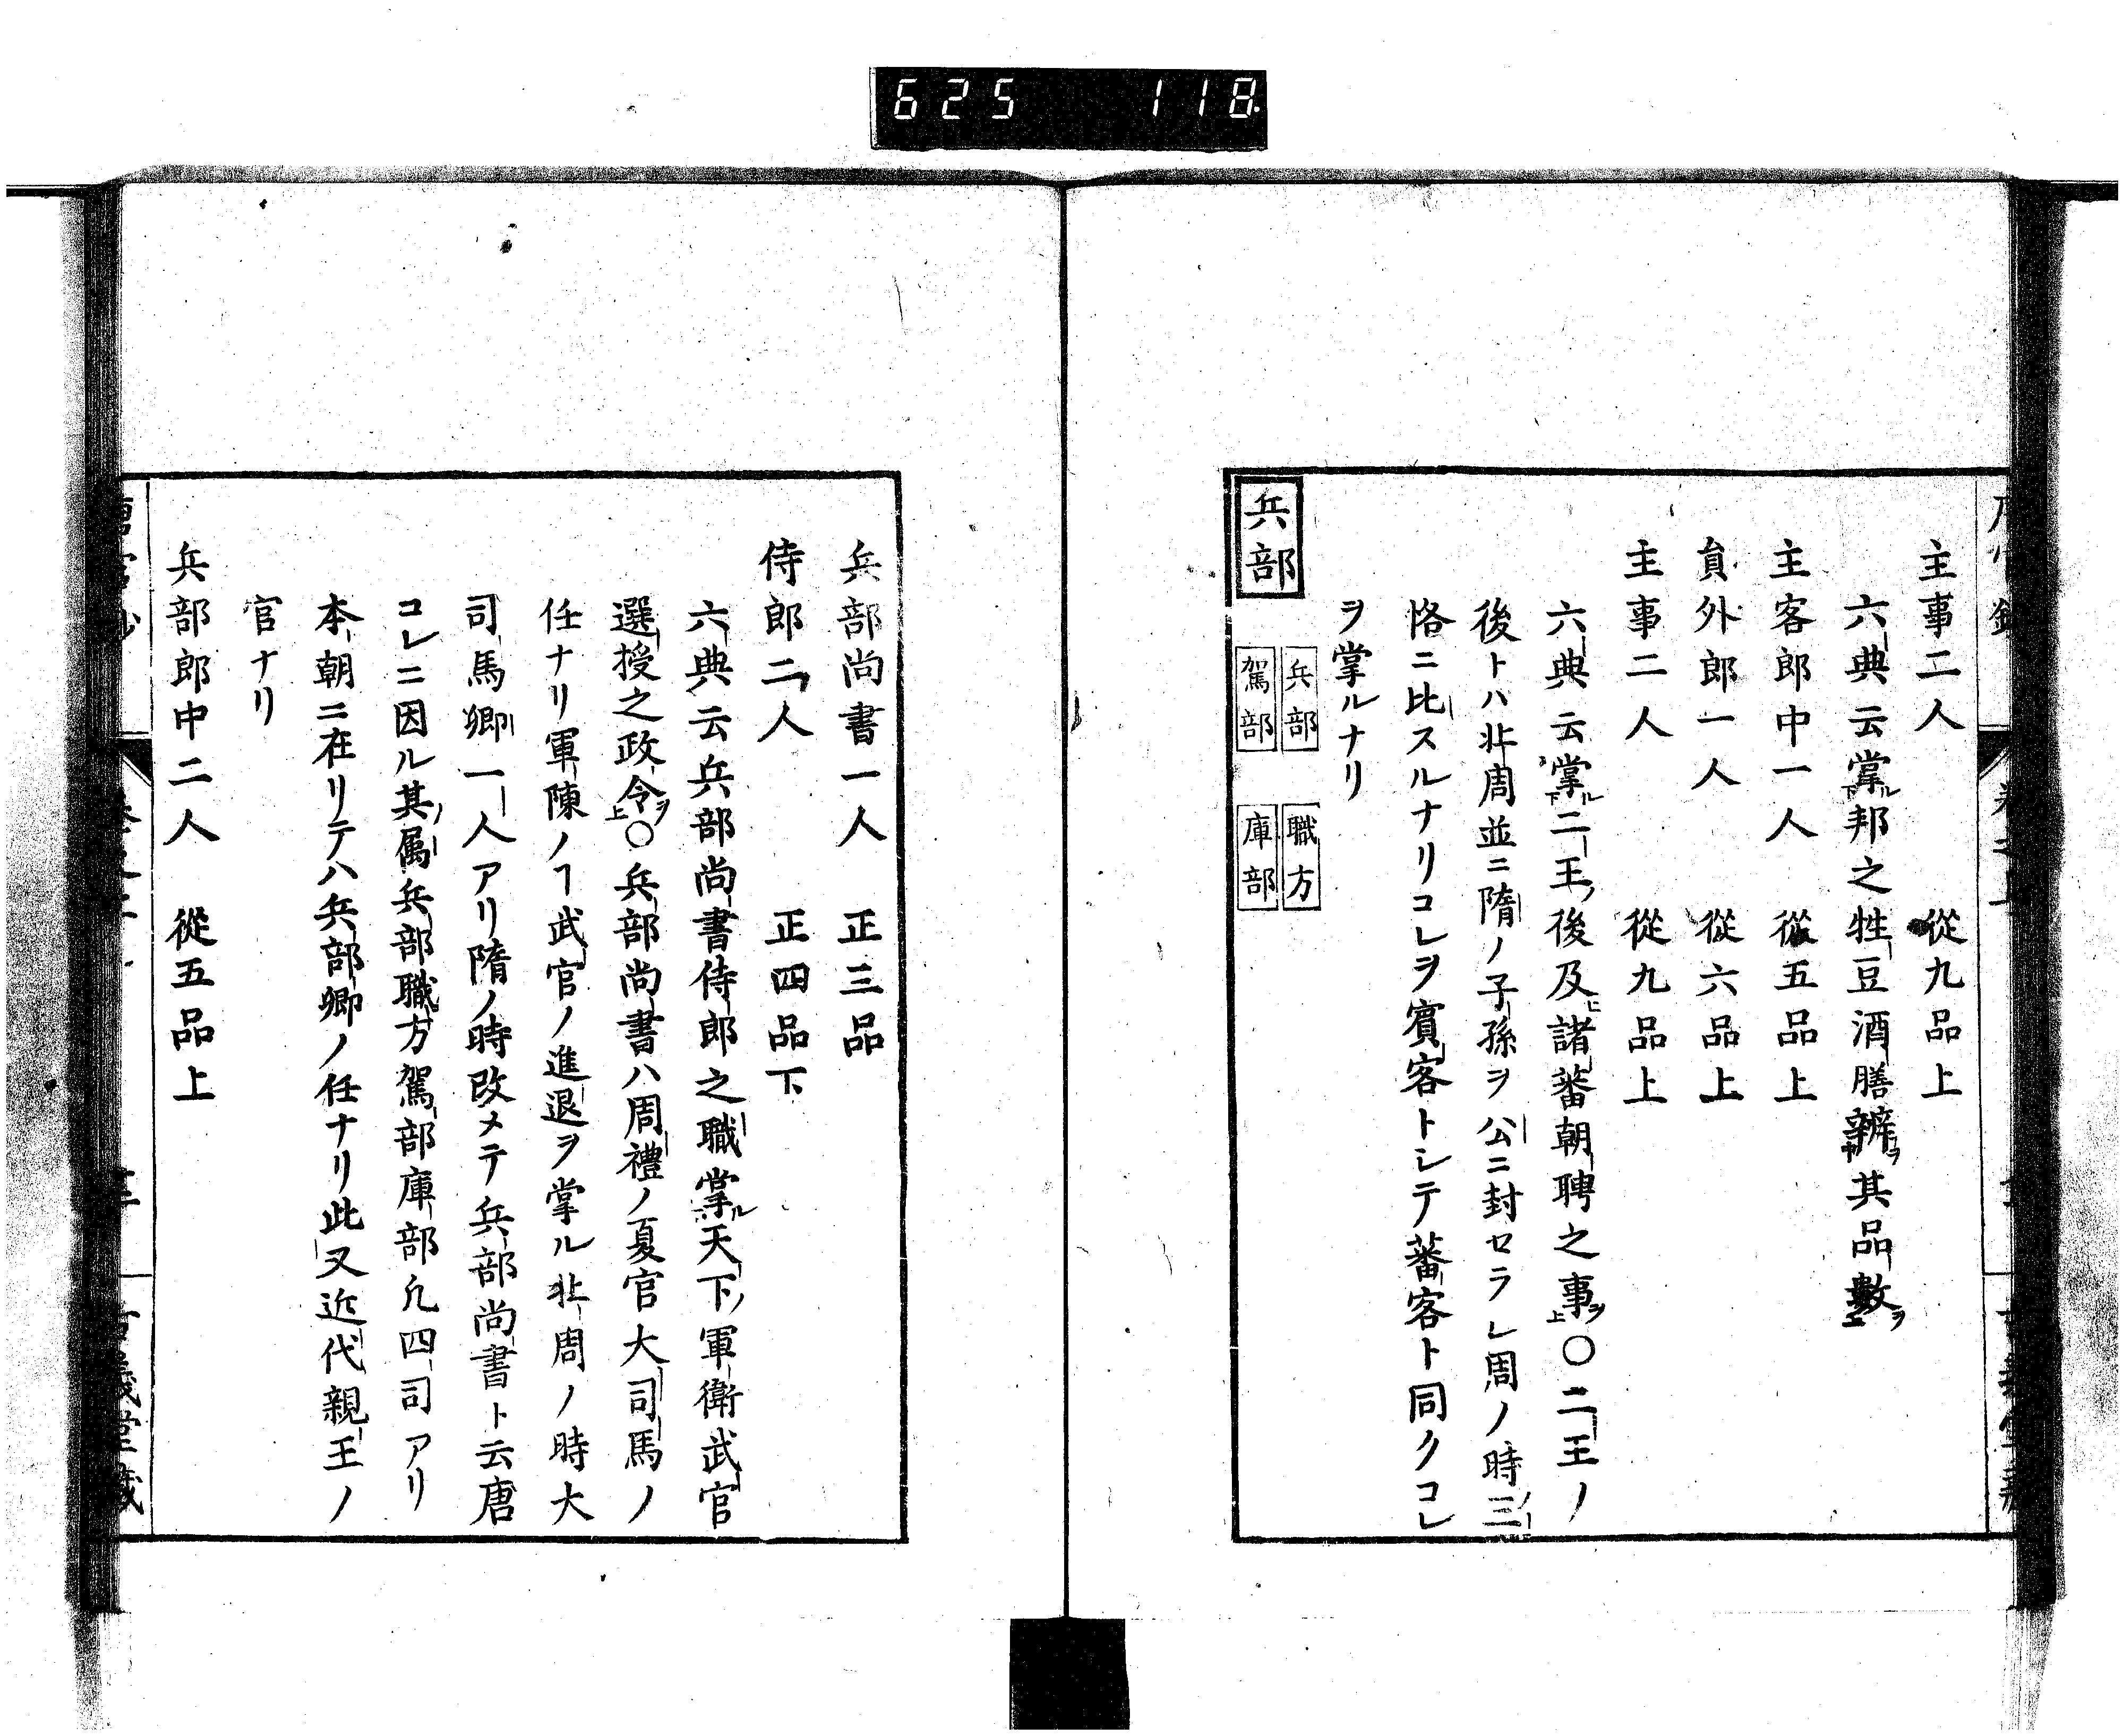 625 118
主事二人 從九品上
六典云掌ル邦之牲豆酒膳辨其品數ヲ
主客郎中一人 從五品上
員外郎一人 從六品上
主事二人 從九品上
六典云掌ル二王ノ後及諸蕃朝聘之事ヲ〇二王ノ
後トハ北周並ニ隋ノ子孫ヲ公ニ封セラレ周ノ時三
恪ニ比スルナリコレヲ賓客トシテ蕃客ト同クコレ
ヲ掌ルナリ
兵部
兵部 職方
駕部 庫部
兵部尚書一人 正三品
侍郎二人 正四品下
六典云兵部尚書侍郎之職掌ル天下ノ軍衛武官
選授之政令ヲ〇兵部尚書ハ周禮ノ夏官大司馬ノ
任ナリ軍陳ノヿ武官ノ進退ヲ掌ル北周ノ時大
司馬卿一人アリ隋ノ時改メテ兵部尚書ト云唐
コレニ因ル其ノ属兵部職方駕部庫部凡四司アリ
本朝ニ在リテハ兵部卿ノ任ナリ此又近代親王ノ
官ナリ
兵部郎中二人 從五品上